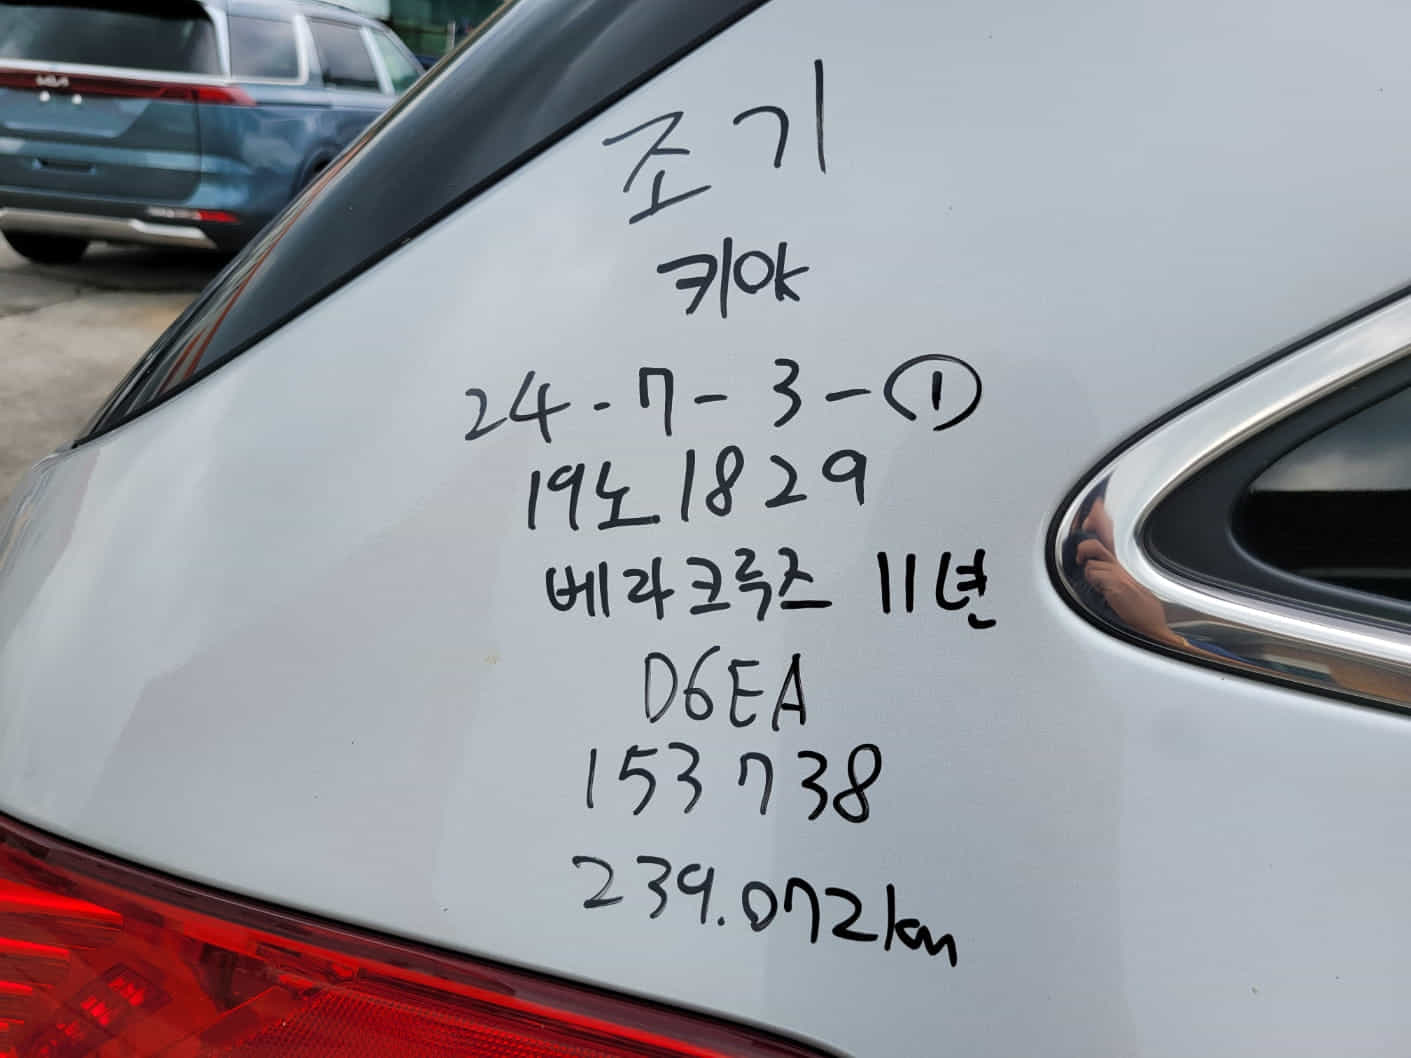 조기
키야
24-7-3-①
19노1829
베라크루즈 11년
D6EA
153738
239.072km